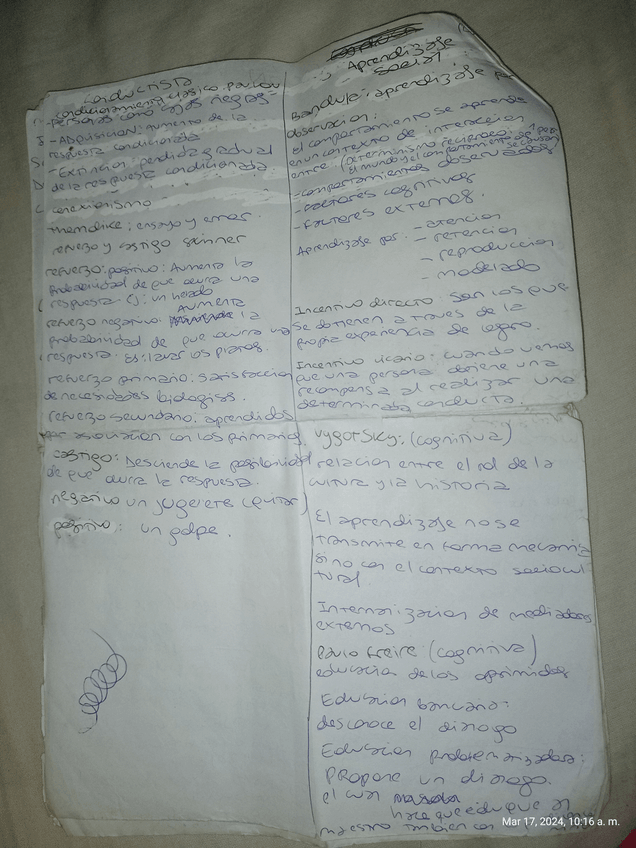 conductista
condicionamiento clásico: pavlov
personas como cajas negras
- Adquisicion: Aumento de la
respuesta condicionada
- Extincion: perdida gradual
de la respuesta condicionada
conexionismo
: ensayo y error.
refuerzo y castigo skinner
refuerzo: positivo: Aumenta la
probabilidad de que ocurra una
respuesta. Ej: un helado
Aumenta
refuerzo negativo: la
probabilidad de que ocurra una
respuesta. Ej: lavar los platos.
refuerzo primario: satisfaccion
de necesidades biologicas.
refuerzo secundario: aprendidos
por asociacion con los primarios.
castigo: Desciende la posibilidad
de que ocurra la respuesta.
negativo un juguete (quitar)
positivo: un golpe.
Aprendizaje
social
Bandura: aprendizaje
observacion:
el comportamiento se aprende
en un contexto de interaccion
entre (Determinismo reciproco:
El mundo y el comportamiento se causan
- comportamientos observados
- factores cognitivos
- factores externos.
Aprendizaje por: - atencion
- retencion
- reproduccion
- modelado
Incentivo directo: son los que
se obtienen a través de la
propia experiencia de logro.
Incentivo vicario: cuando vemos
que una persona obtiene una
recompensa al realizar una
determinada conducta.
Vygotsky: (cognitiva)
relacion entre el rol de la
cultura y la historia
El aprendizaje no se
transmite en forma mecanica
si no con el contexto sociocul
tural
Internalizacion de mediadores
externos
Paulo Freire (cognitiva)
educacion de los oprimidos
Educacion bancaria:
desconoce el dialogo
Educacion problematizadora:
Propone un dialogo.
el cual
hace que eduque al
maestro tambien
Mar 17, 2024, 10:16 a. m.